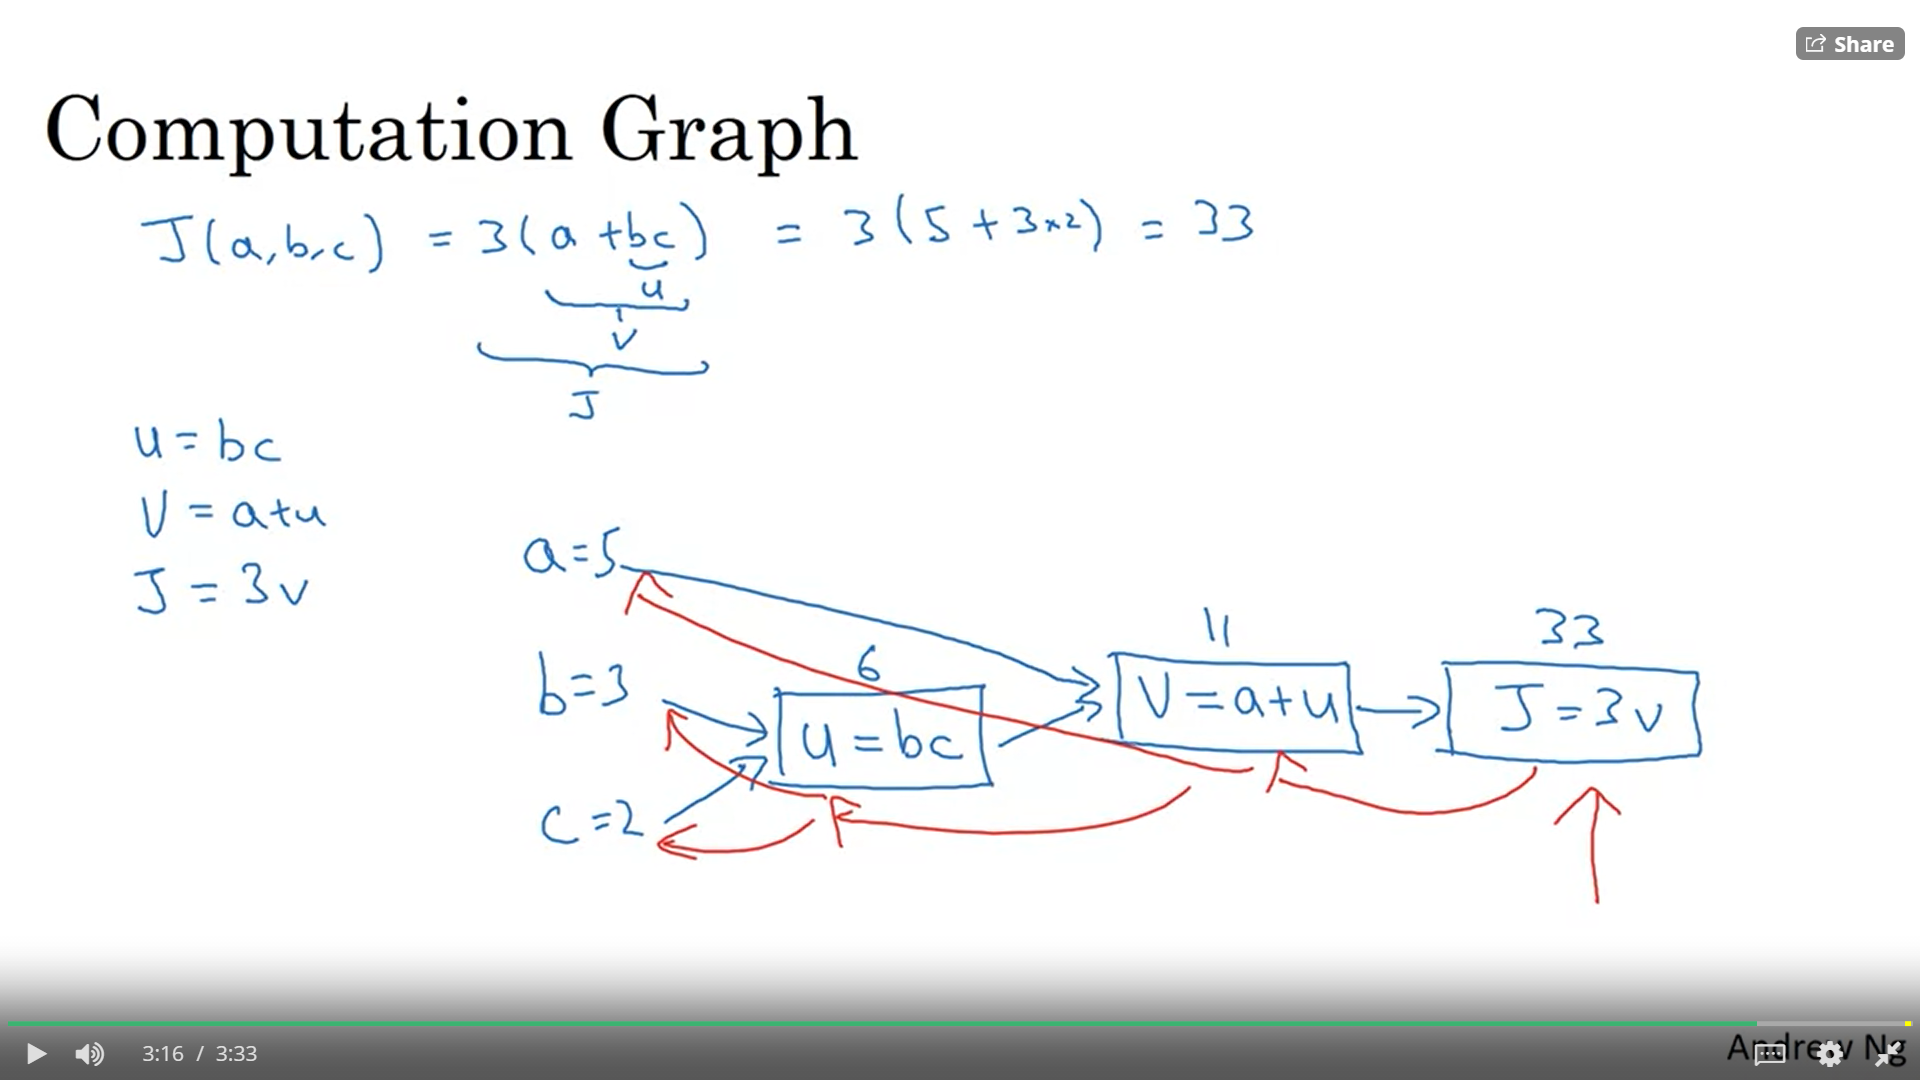 Share
Computation Graph
J(a,b,c) = 3(a+bc) = 3(5+3×2) = 33
u
v
J
u = bc
v = a+u
J = 3v
a=5
11
33
b=3
6
v = a+u
J = 3v
u = bc
c=2
3:16 / 3:33
Andrew Ng